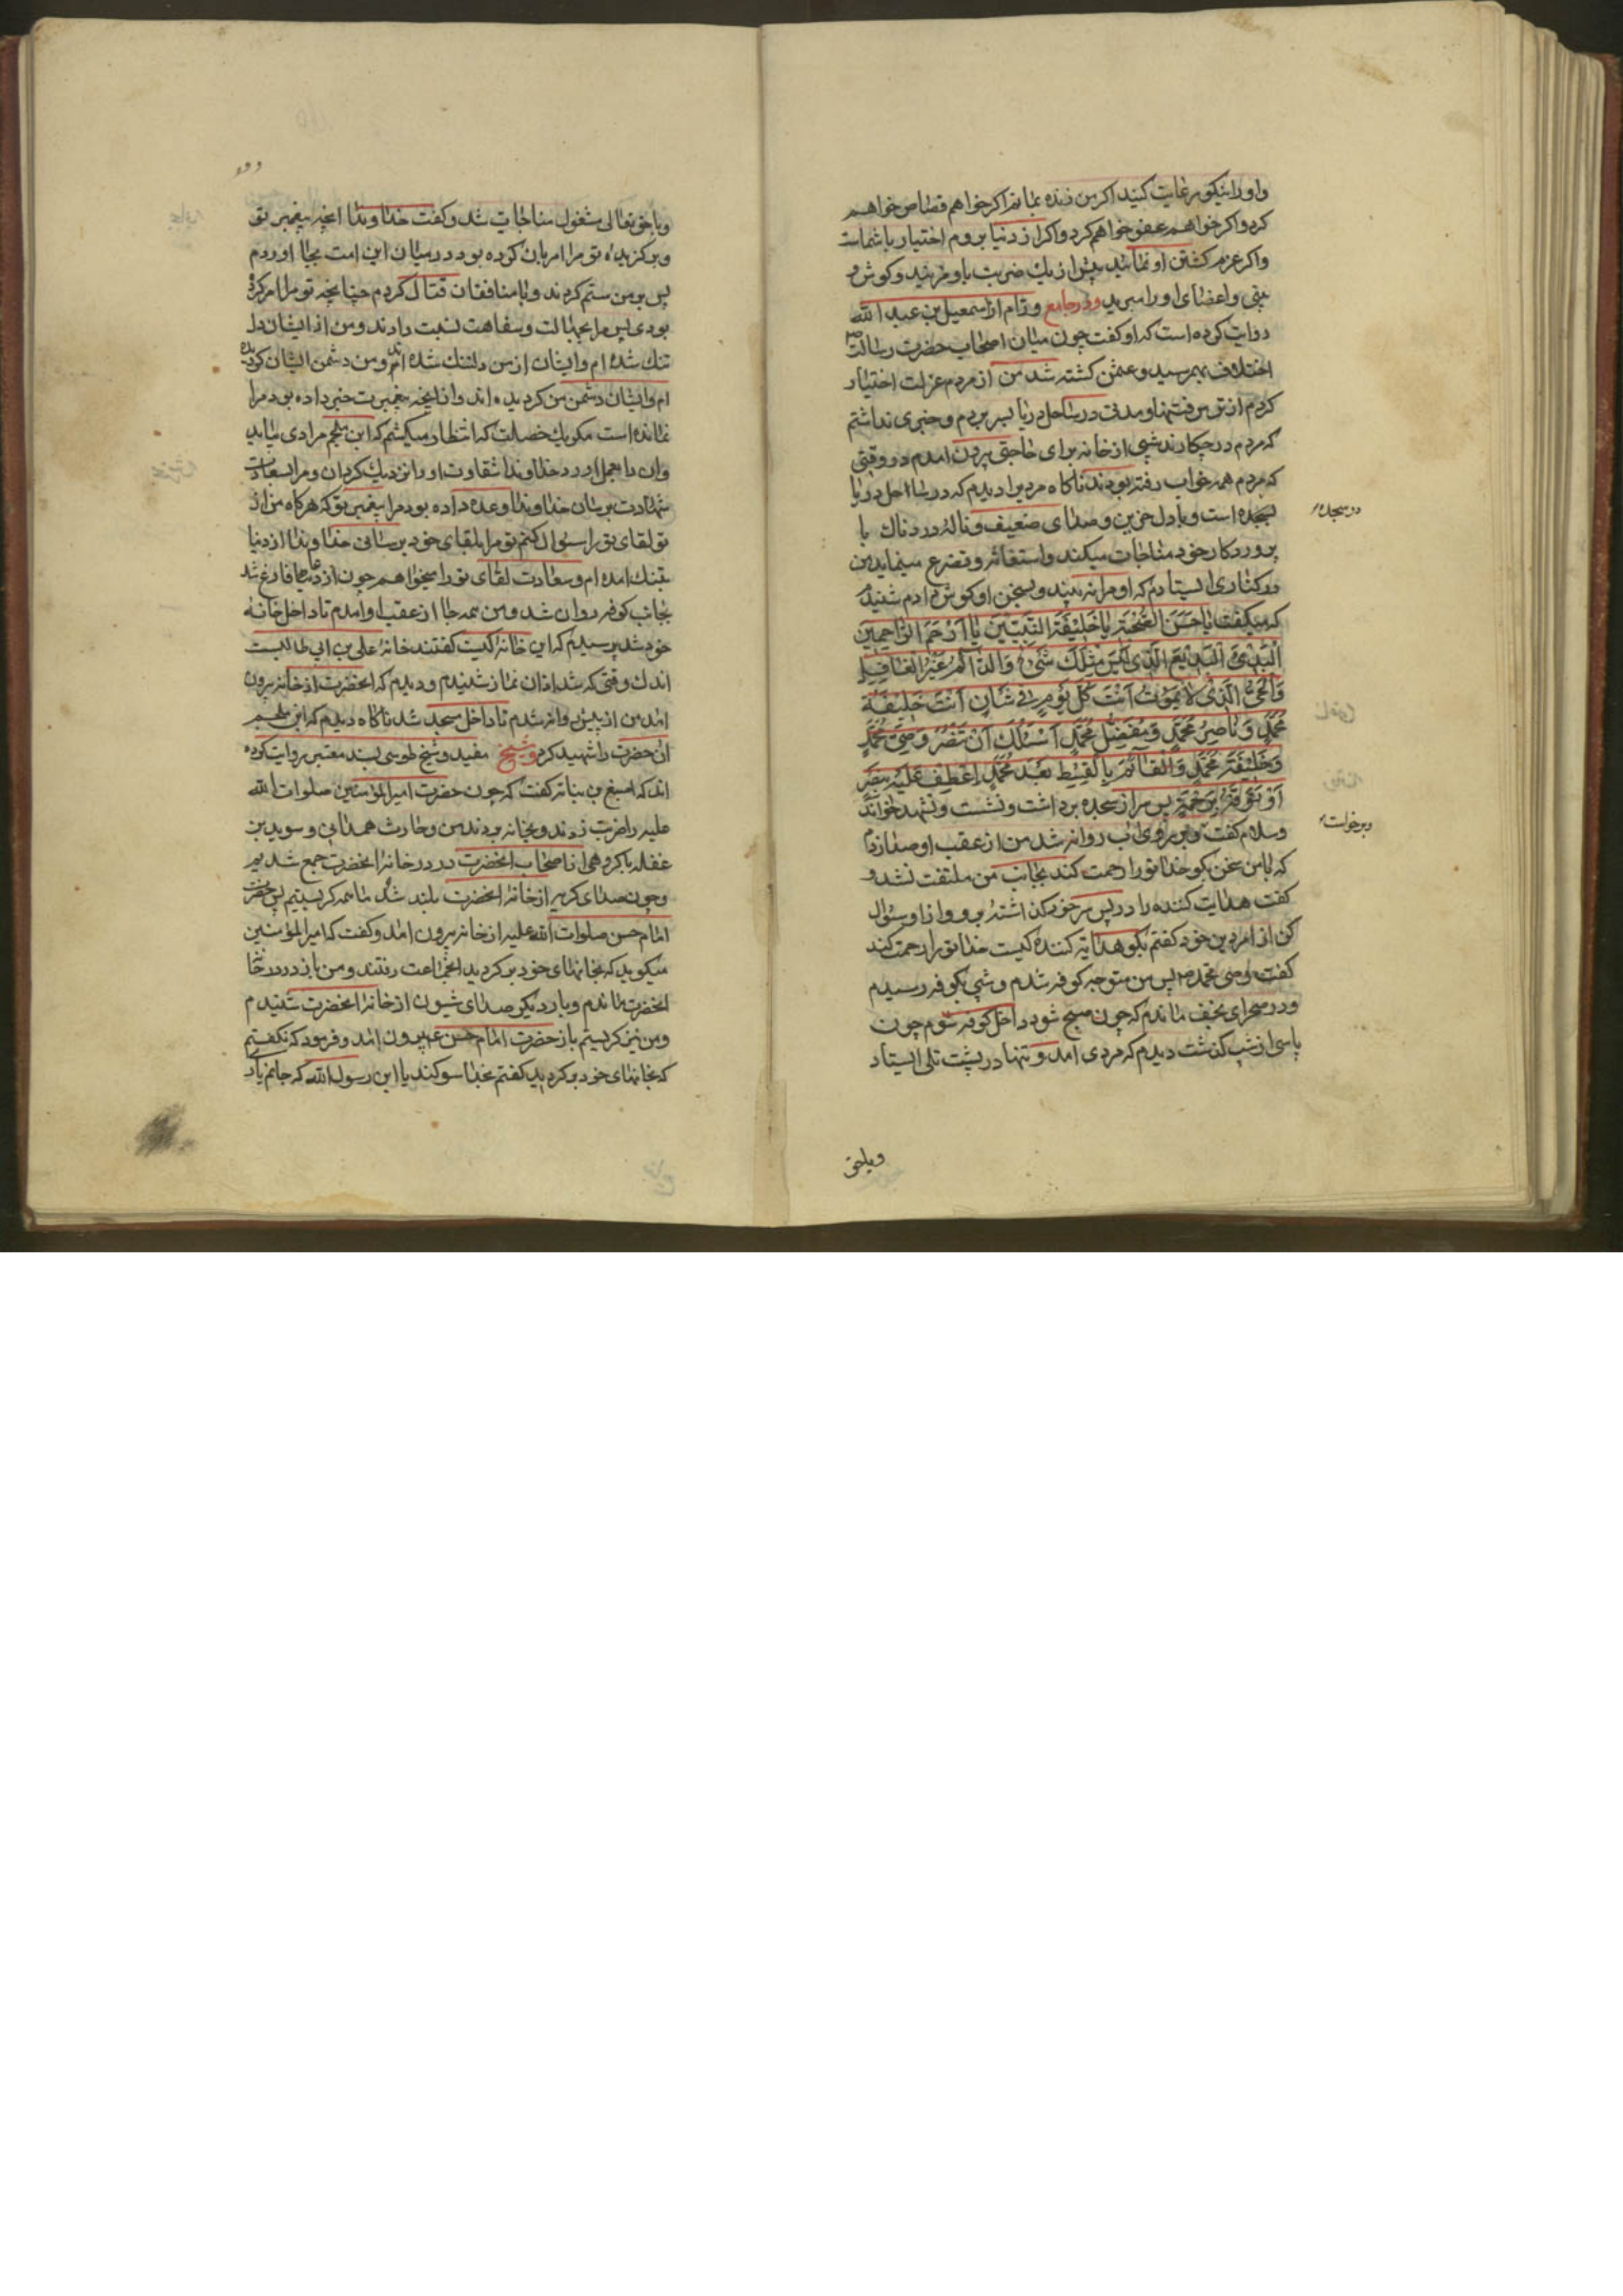 واو را نیکو رعایت کنید اکر من زنده بمانم اکر خواهم قصاص خواهم
کرد و اکر خواهم عفو خواهم کرد و اکر از دنیا بروم اختیار با شماست
واکر عزم کشتن او نمائید پیش از یك ضربت باو مزنید و کوش و
بینی و اعضای او را مبرید ودر جامع ورّام از اسمعیل بن عبد الله
روایت کرده است که او کفت چون میان اصحاب حضرت رسالت ص
اختلاف بهم رسید و عثمن کشته شد من از مردم عزلت اختیار
کردم از تو من فتنها و مدتی در ساحل دریا بسر بردم و خبری نداشتم
که مردم در چکارند شبی از خانه برای حاجتی بیرون امدم در وقتی
که مردم همه خواب رفته بودند ناکاه مردیرا دیدم که در ساحل دریا
در سجده
بسجده است و با دل حزین و صدای ضعیف و ناله دردناك با
پروردکار خود مناجات میکند و استغاثه و تضرع مینماید من
در کناری ایستادم که او مرا نه بیند و بسخن او کوش دادم شنیدم
که میکفت یا حَسَنَ الصُّحْبَةِ یا خَلیفَةَ النَّبِیّینَ یا اَرْحَمَ الرّاحِمینَ
اَلْبَدیءُ الْبَدیعُ الَّذی لَیْسَ مِثْلَكَ شَیْءٌ وَالدّآئِمُ غَیْرُ الْغافِلِ
وَالْحَیُّ الَّذی لا یَمُوتُ اَنْتَ کُلَّ یَوْمٍ فی شَأنٍ اَنْتَ خَلیفَةُ
مُحَمَّدٍ وَ ناصِرُ مُحَمَّدٍ وَ مُفَضِّلُ مُحَمَّدٍ اَسْئَلُكَ اَنْ تَنْصُرَ وَصِیَّ مُحَمَّدٍ
وَ خَلیفَةَ مُحَمَّدٍ وَالْقآئِمَ بِالْقِسْطِ بَعْدَ مُحَمَّدٍ اِعْطِفْ عَلَیْهِ بِنَصْرٍ
اَوْ تَوَفَّهُ بِرَحْمَةٍ پس سر از سجده برداشت و نشست و تشهد خواند
و برخواست
وسلام کفت و بر روی اب روانه شد من از عقب او صدا زدم
که با من سخن بکو خدا تو را رحمت کند بجانب من ملتفت نشد و
کفت هدایت کننده را در پس سر خود کذاشتهٔ برو و از او سئوال
کن از امر دین خود کفتم بکو هدایة کننده کیست خدا تو را رحمت کند
کفت وصی محمد ص پس من متوجه کوفه شدم و شبی بکوفه رسیدم
و در صحرای نجف ماندم که چون صبح شود داخل کوفه شوم چون
پاسی از شب کذشت دیدم که مردی امد و تنها در پشت تلی ایستاد
و با حق
و با حق تعالی مشغول مناجات شد و کفت خداوندا انچه پیغمبر تو
و برکزیده تو مرا امر بان کرده بود در میان این امت بجا اوردم
پس بر من ستم کردند و با منافقان قتال کردم چنانچه تو مرا امر کرده
بودی پس مرا بجهالت و سفاهت نسبت دادند و من از ایشان دل
تنك شده ام وایشان از من دلتنك شده اند و من دشمن ایشان کردیده
ام وایشان دشمن من کردیده اند واز انچه پیغمبرت خبر داده بود مرا
نمانده است مکر یك خصلت که انتظار میکشم که ابن ملجم مرادی بیاید
وان را بعمل اورد خداوندا شقاوت او را نزدیك کردان و مرا بسعادت
شهادت برسان خداوندا وعده داده بود مرا پیغمبر تو که هرکاه من از
تو لقای تو را سئوال کنم تو مرا بلقای خود برسانی خداوندا از دنیا
بتنك امده ام و سعادت لقای تو را میخواهم چون از دعا فارغ شد
بجانب کوفه روان شد و من همه جا از عقب او امدم تا داخل خانهٔ
خود شد پرسیدم که این خانهٔ کیست کفتند خانهٔ علی بن ابی طالبست
اندك وقتی که شد اذان نماز شنیدم و دیدم که انحضرت از خانه بیرون
امد من از پیش روانه شدم تا داخل مسجد شد ناکاه دیدم که ابن ملجم
ان حضرت را شهید کرد وشیخ مفید و شیخ طوسی بسند معتبر روایت کرده
اند که اصبغ بن نباته کفت که چون حضرت امیر المؤمنین صلوات الله
علیه را ضربت زدند و بخانه بردند من و حارث همدانی و سوید بن
غفله با کروهی از اصحاب انحضرت در در خانه انحضرت جمع شدیم
و چون صدای کریه از خانه انحضرت بلند شد ما همه کریستیم پس حضرت
امام حسن صلوات الله علیه از خانه بیرون امد و کفت که امیر المؤمنین
میکوید که بخانهای خود برکردید انجماعت رفتند و من باز در در خانهٔ
انحضرت ماندم و بار دیکر صدای شیون از خانه انحضرت شنیدم
و من نیز کریستم باز حضرت امام حسن ع بیرون امد و فرمود که نکفتم
که بخانهای خود برکردید کفتم بخدا سوکند یا ابن رسول الله که جانم یاری